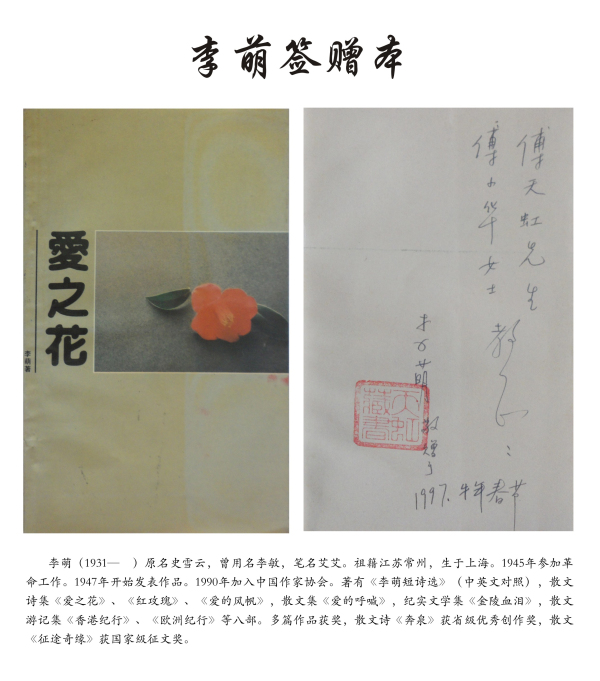 李萌签赠本
愛之花
李萌著
傅天虹先生
傅小华女士
教正
李萌
敬赠于
1997.牛年春节
天虹
藏書
李萌（1931—　）原名史雪云，曾用名李敏，笔名艾艾。祖籍江苏常州，生于上海。1945年参加革
命工作。1947年开始发表作品。1990年加入中国作家协会。著有《李萌短诗选》（中英文对照），散文
诗集《爱之花》、《红玫瑰》、《爱的风帆》，散文集《爱的呼喊》，纪实文学集《金陵血泪》，散文
游记集《香港纪行》、《欧洲纪行》等八部。多篇作品获奖，散文诗《奔泉》获省级优秀创作奖，散文
《征途奇缘》获国家级征文奖。